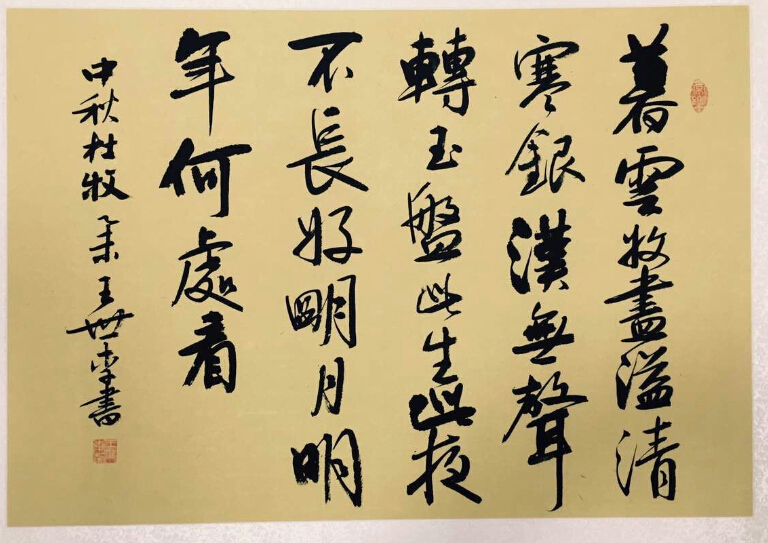 暮雲收盡溢清
寒銀漢無聲
轉玉盤此生此夜
不長好明月明
年何處看
中秋杜牧王世書